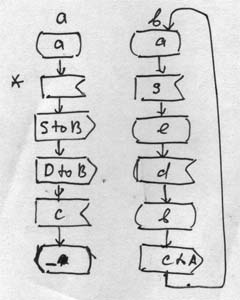 a
a
*
S to B
D to B
c
b
a
s
e
d
b
c to A